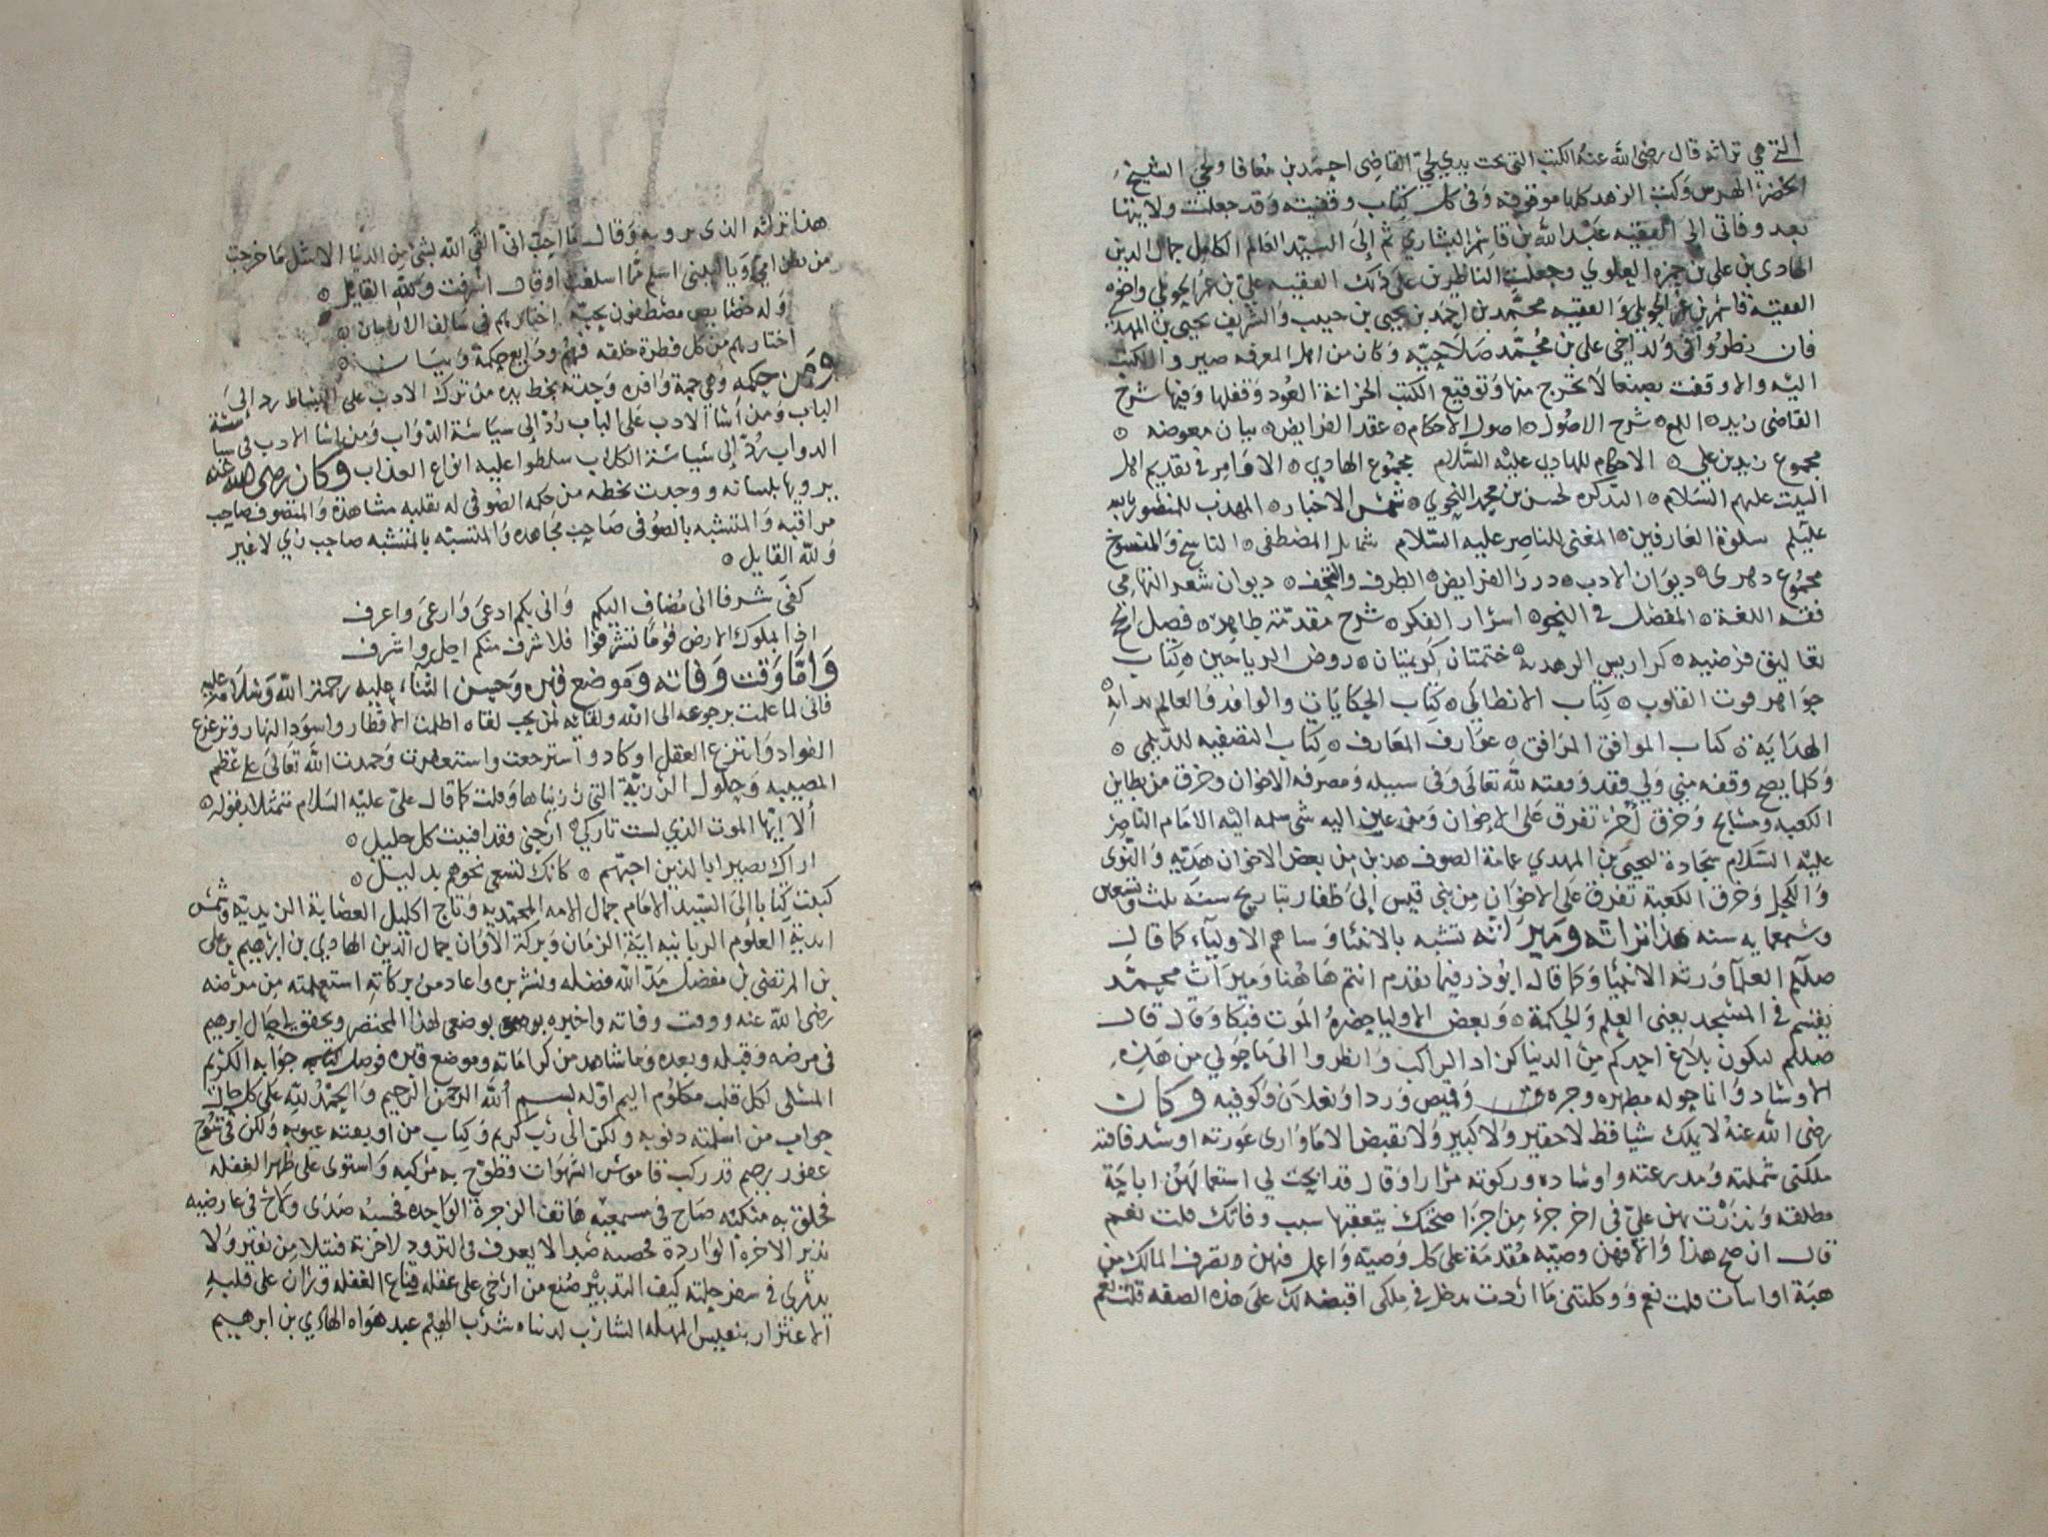 التي هي تراثه قال رضى الله عنه الكتب التي تحت يدي القاضى احمد بن معافا الشيخ
الخضر الهرش وكتب الزهد كلها موقوفه وفى كل كتاب وقفيته وقد جعلت ولايتها
بعد وفاتى الى الفقيه عبد الله بن قاسم البشاري ثم إلى السيد العالم الكامل جمال الدين
الهادى بن على بن حمزه العلوي وجعلت الناظرين على ذلك الفقيه علي بن عمر واخوه
الفقيه قاسم بن عمر والفقيه محمد بن احمد بن يحيى بن حبيب والشريف يحيى بن المهدي
فان نظروا فى ولد اخى على بن محمد صلاحيه وكان من اهل المعرفه صير والكتب
اليه والا وقفت بصنعا لا تخرج منها وتوقيع الكتب الخزانة العود وقفلها وفيها شرح
القاضى زيد ه اللمع ه شرح الاصول ه اصول الاحكام ه عقد الفرايض ه بيان معوضه ه
مجموع زيد بن علي ه الاحكام للهادي عليه السلام مجموع الهادي ه الاوامر في تقديم اهل
البيت عليهم السلام ه التذكره لحسن بن محمد النحوي ه شمس الاخبار ه المهذب للمنصور بالله
عليلم سلوة العارفين ه المغنى للناصر عليه السلام شمايل المصطفى ه الناسخ والمنسوخ
مجموع ه ديوان الادب ه درر الفرايض ه الطرف والتحف ه ديوان شعر التهامي
فقه اللغة ه المفصل في النحو ه اسرار الفكر ه شرح مقدمة طاهر ه فصل
تعاليق فرضيه ه كراريس الزهد ه ختمتان كريمتان ه روض الرياحين ه كتاب
جواهر قوت القلوب ه كتاب الانطاكي ه كتاب الحكايات والوافد والعالم بداية
الهداية ه كتاب الموافق المرافق ه عوارف المعارف ه كتاب التصفيه للديلمي ه
وكلما يصح وقفه مني ولي فقد وقفته لله تعالى وفى سبيله ومصرفه الاخوان وخرق من بطاين
الكعبه ومسابح وخرق أخر تفرق على الاخوان ومن عين اليه شي سلمه اليه الامام الناصر
عليه السلام سجادة ليحيى بن المهدي عمامة الصوف هد بن من بعض الاخوان هديه والنوى
والكحل وخرق الكعبة تفرق على الاخوان من بني قيس إلى ظفار بتاريخ سنة ثلث وتسعين
وسبعمايه سنه هذا تراثه وميراثه تشبه بالانبياء وساهم الاولياء كما قال
صللم العلما ورثه الانبيا وكما قاله ابوذر فيما تقدم انتم هاهنا وميراث محمد
يقسم في المسجد يعنى العلم والحكمة ه وبعض الاوليا حضره الموت فبكا وقال قال
صللم ليكون بلاغ احدكم من الدنيا كزاد الراكب وانظروا الى ما حولي من هذه
الاوساد وانما حوله مطهره وجره وقميص وردا ونعلان وكوفيه وكان
رضى الله عنه لا يملك شيا قط لا حقير ولا كبير ولا يقبض الا ما وارى عورته او سد فاقته
ملكنى شملته ومدرعته واوساده وركوته مرارا وقال قد ابحت لي استعمالهن اباحة
مطلقه ونذرت بهن علي فى اخر جزء من اجزا صحتك يتعقبها سبب وفاتك قلت نعم
قال ان صح هذا والا فهن وصيه مقدمة على كل وصيه واعمل فيهن وتصرف المالك من
هبة او اسات قلت نعم ووكلتنى ما اردت تدخل في ملكى اقبضه لك على هذه الصفه قلت نعم
هذا تراثه الذى يرويه وقال ما احب انى القى الله بشئ من الدنيا الا مثل ما خرجت
من بطن امي ويا ليتنى اسلم مما اسلفت او قال اسرفت ولله القايل ه
وله خصايص مصطفون بحبه اختارهم فى سالف الازمان ه
اختارهم من كل فطرة خلقه فهم ودايع حكمة وبيان ه
ومن حكمه وهي جمة وافره وجدته بخط يده من ترك الادب على البساط رد إلى
الباب ومن أسا الادب على الباب رد إلى سياسة الدواب ومن اسا الادب فى سياسة
الدواب رد إلى سياسة الكلاب سلطوا عليه انواع العذاب وكان رضى الله عنه
يرويها بلسانه ووجدت بخطه من حكمه الصوفى له بقلبه مشاهدة والمتصوف صاحب
مراقبه والمتشبه بالصوفى صاحب مجاهده والمتشبه بالمتشبه صاحب زي لا غير
ولله القايل ه
كفى شرفا انى مضاف اليكم وانى بكم ادعى وارعى واعرف
اذا بملوك الارض قوما تشرفوا فلا شرف منكم اجل واشرف
واما وقت وفاته وموضع قبره وحسن الثناء عليه رحمة الله وسلامه عليه
فانى لما علمت برجوعه الى الله ولقائه لمن يحب لقاه اظلمت الاقطار واسود النهار وتزعزع
الفواد وانتزع العقل او كاد واسترجعت واستعظمت وحمدت الله تعالى على عظم
المصيبه وحلول الرزية التي رزيناها وقلت كما قال علي عليه السلام متمثلا بقوله ه
ألا ايها الموت الذي لست تاركي ه ارحنى فقد افنيت كل خليل ه
اراك بصيرا بالذين احبهم ه كانك تسعى نحوهم بدليل ه
كتبت كتابا إلى السيد الامام جمال الامه المحمديه وتاج اكليل العصابة الزيدية وشمس
اندية العلوم الربانيه اية الزمان وبركة الاوان جمال الدين الهادي بن ابرهيم بن على
بن المرتضى بن مفضل مد الله فضله ونشر بره واعاد من بركاته استعلمته من مرضه
رضى الله عنه ووقت وفاته واخبره بوضعى لهذا المختصر وتحقق احوال ابرهيم
فى مرضه وقبله وبعده وما شاهد من كراماته وموضع قبره فوصل كتابه جوابه الكريم
المسلى لكل قلب مكلوم اليم اوله بسم الله الرحمن الرحيم والحمد لله على كل حال
جواب من اسلمته ذنوبه ولكن الى رب كريم وكتاب من اوبقته عيوبه ولكن فى
غفور رحيم قد ركب قاموس الشهوات فطوح به مركبه واستوى على ظهر الغفله
فحلق به متكئه صاح فى مسمعيه هاتف الزجرة الواحده فحسبه صدى ولاح فى عارضيه
نذير الاخرة الواردة لا يعرف فى التزود لاخرته فتيلا من نقير ولا
يدري في سفر حلته كيف التدبير صنع من ارخى على عقله قناع الغفله وران على قلبه
الاغترار بنفيس المهله الشارب لدنياه شرب الهيم عبد هواه الهادي بن ابرهيم